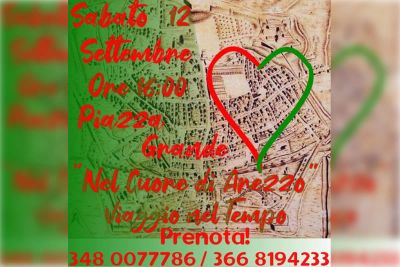 Sabato 12
Settembre
Ore 16:00
Piazza
Grande
"Nel Cuore di Arezzo"
Viaggio nel Tempo
Prenota!
348 0077786 / 366 8194233